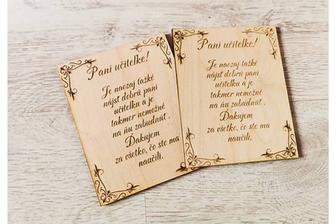 Pani učiteľke!
Je naozaj ťažké
nájsť dobrú pani
učiteľku a je
takmer nemožné
na ňu zabudnúť.
Ďakujem
za všetko, čo ste ma
naučili.
Pani učiteľke!
Je naozaj ťažké
nájsť dobrú pani
učiteľku a je
takmer nemožné
na ňu zabudnúť.
Ďakujem
za všetko, čo ste ma
naučili.